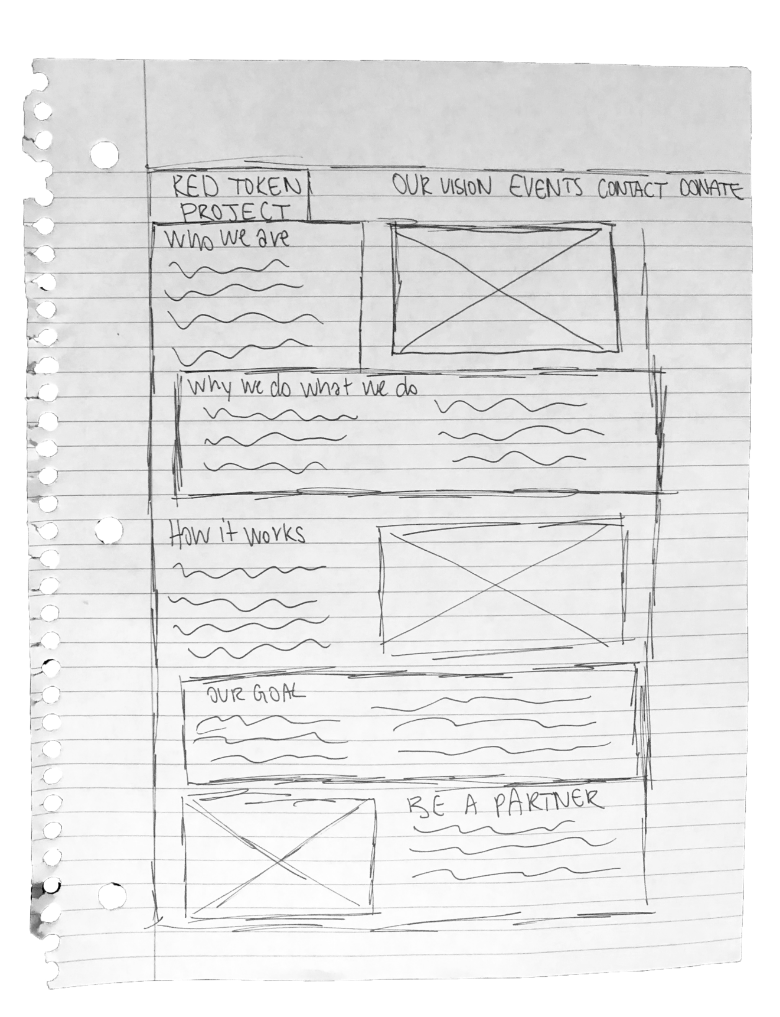 RED TOKEN
PROJECT
OUR VISION EVENTS CONTACT DONATE
Who we are
Why we do what we do
How it works
OUR GOAL
BE A PARTNER